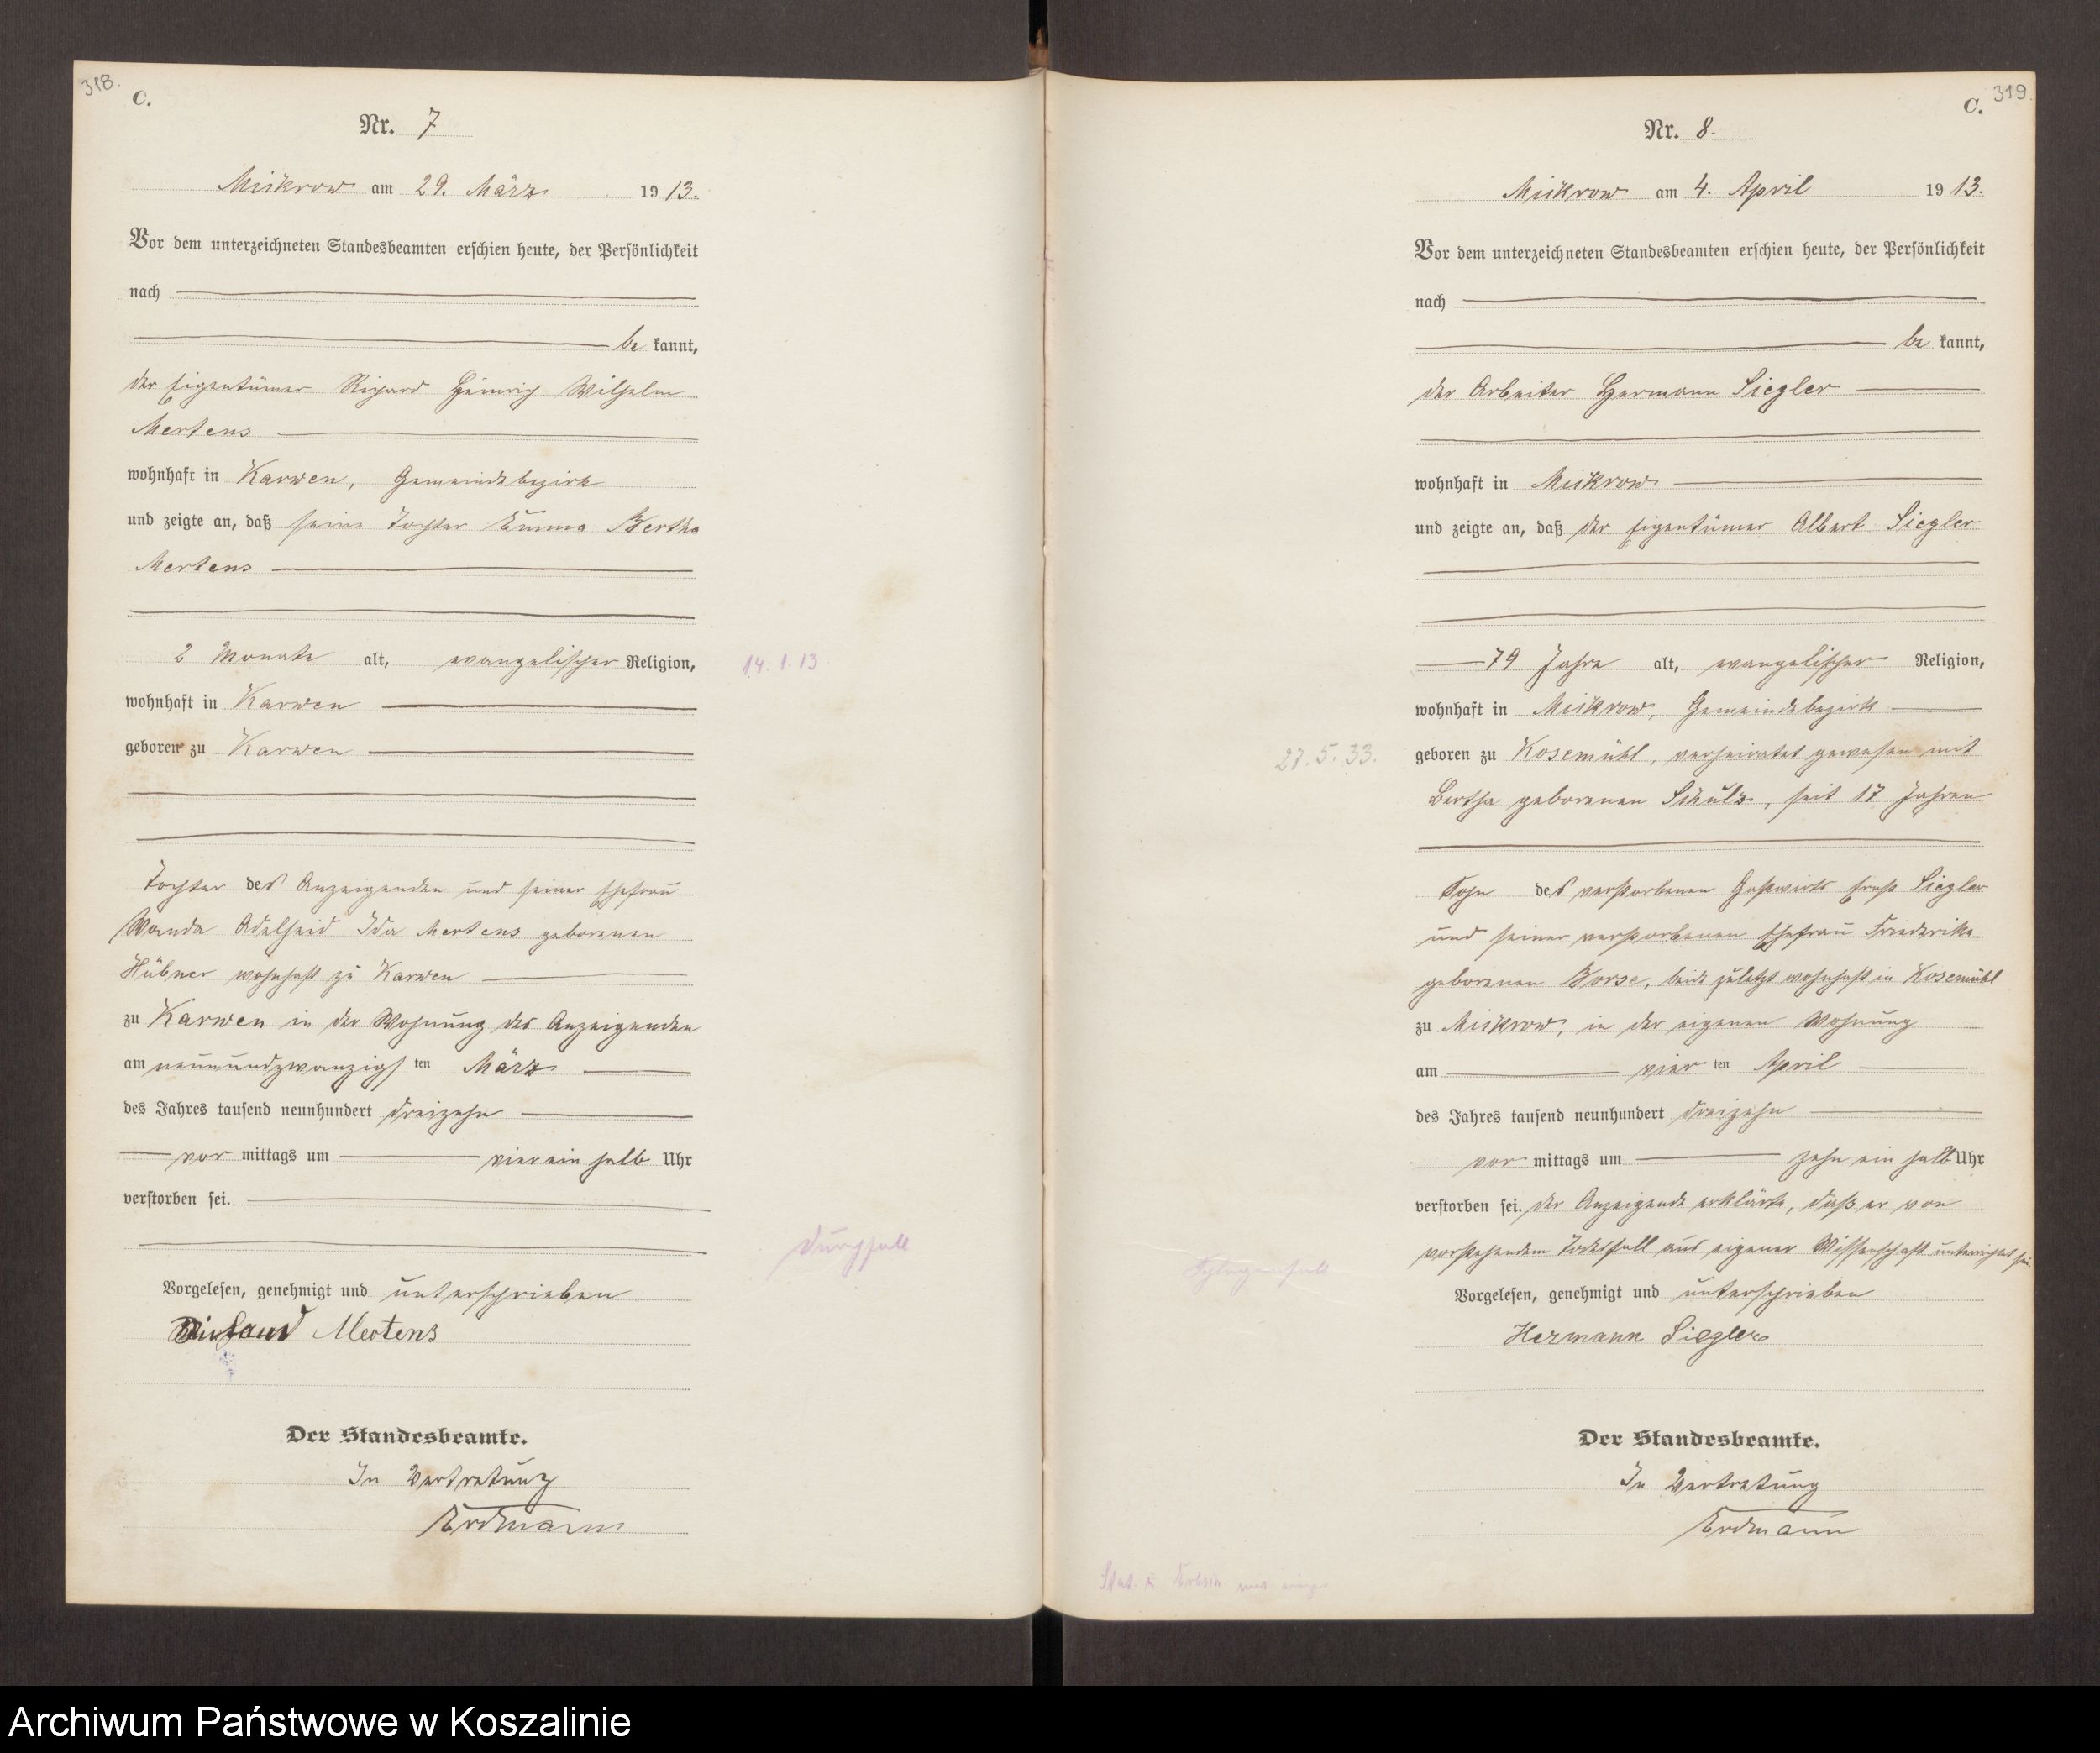 318.
C.
Nr. 7
Mickrow am 29. März 1913.
Vor dem unterzeichneten Standesbeamten erschien heute, der Persönlichkeit
nach
be kannt,
der Eigentümer Richard Heinrich Wilhelm
Mertens
wohnhaft in Karwen, Gemeindebezirk
und zeigte an, daß seine Tochter Emma Bertha
Mertens
2 Monate alt, evangelischer Religion,
14. 1. 13
wohnhaft in Karwen
geboren zu Karwen
Tochter des Anzeigenden und seiner Ehefrau
Wanda Adelheid Ida Mertens geborenen
Hübner wohnhaft zu Karwen
zu Karwen in der Wohnung des Anzeigenden
am neunundzwanzigsten März
des Jahres tausend neunhundert dreizehn
vor mittags um vier ein halb Uhr
verstorben sei.
Durchfall
Vorgelesen, genehmigt und unterschrieben
Mertens
Der Standesbeamte.
In Vertretung
Erdmann
319.
C.
Nr. 8.
Mickrow am 4. April 1913.
Vor dem unterzeichneten Standesbeamten erschien heute, der Persönlichkeit
nach
be kannt,
der Arbeiter Hermann Siegler
wohnhaft in Mickrow
und zeigte an, daß der Eigentümer Albert Siegler
79 Jahre alt, evangelischer Religion,
wohnhaft in Mickrow, Gemeindebezirk
27. 5. 33.
geboren zu Kosemühl, verheiratet gewesen mit
Bertha geborenen Schulz, seit 17 Jahren
Sohn des verstorbenen Gastwirts Ernst Siegler
und seiner verstorbenen Ehefrau Friederike
geborenen Borse, beide zuletzt wohnhaft in Kosemühl
zu Mickrow, in der eigenen Wohnung
am vier ten April
des Jahres tausend neunhundert dreizehn
vor mittags um zehn ein halb Uhr
verstorben sei. Der Anzeigende erklärte, daß er von
vorstehendem Todesfall aus eigener Wissenschaft unterrichtet sei.
Schlaganfall
Vorgelesen, genehmigt und unterschrieben
Hermann Siegler
Der Standesbeamte.
In Vertretung
Erdmann
Archiwum Państwowe w Koszalinie